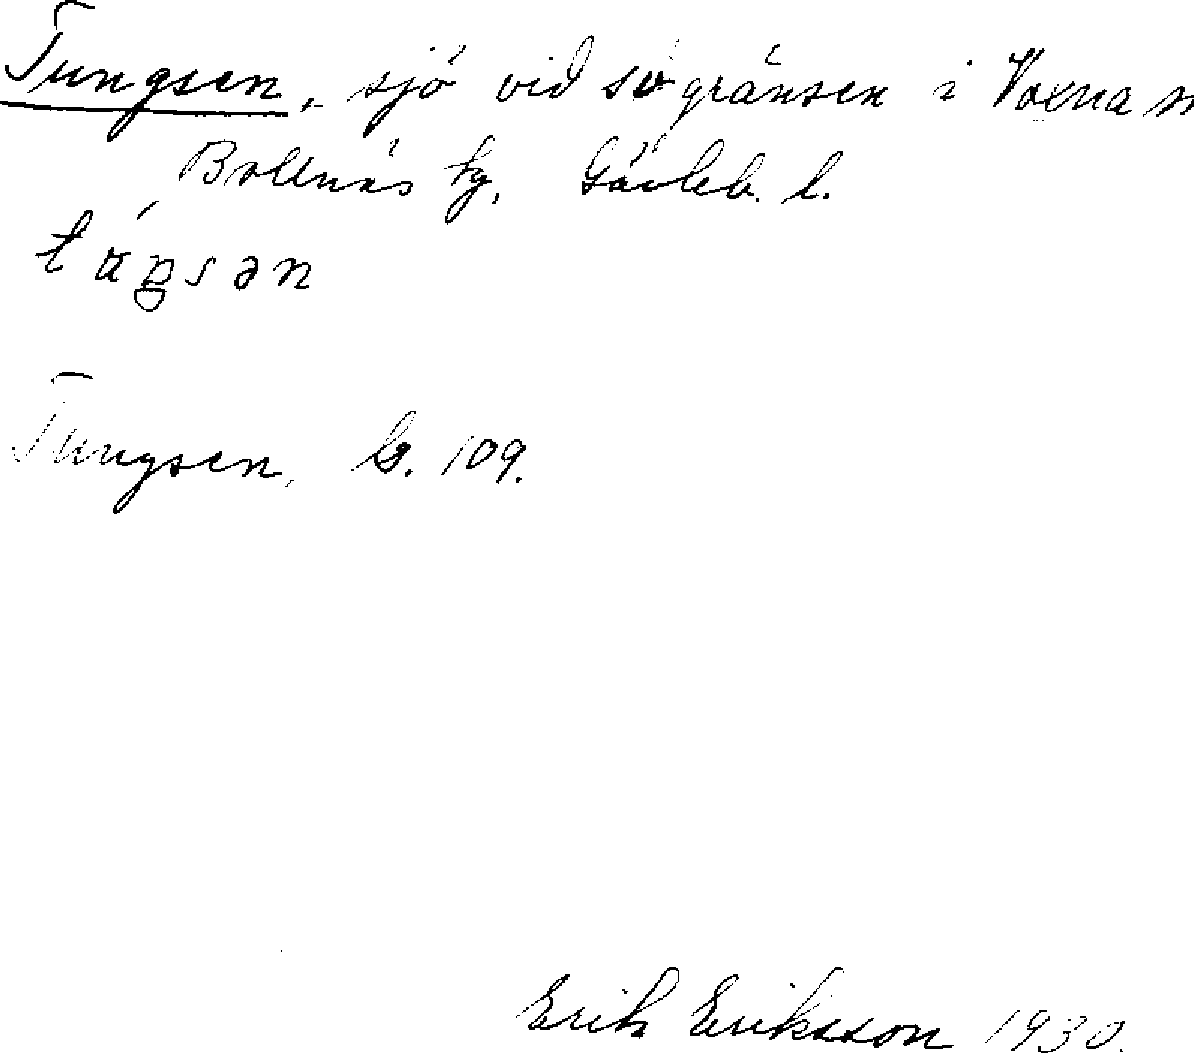 Tungsen, sjö vid sv gränsen i Voxna
Bollnäs tg, Gävleb. l.
Tungsen, G. 109.
Erik Eriksson 1930.